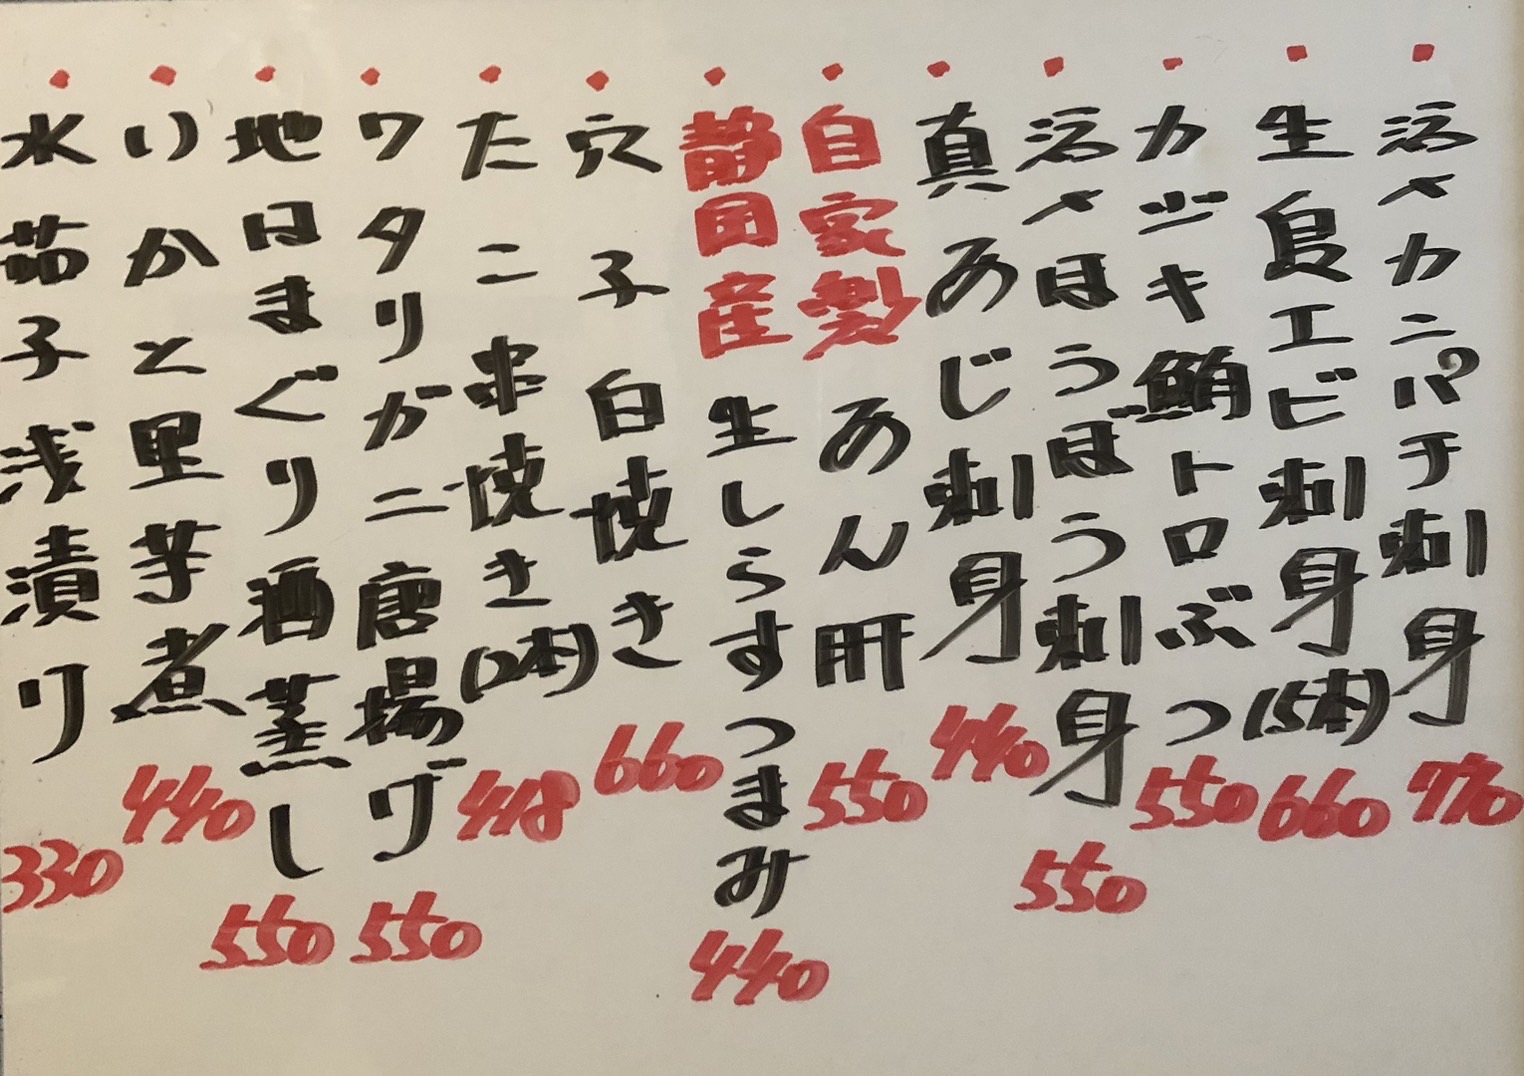 活〆カンパチ刺身 770
生 エビ刺身(5本) 660
カジキ鮪トロぶつ 550
活〆ほうぼう刺身 550
真あじ刺身 440
自家製 あん肝 550
静岡産 生しらすつまみ 440
穴子白焼き 660
たこ串焼き(2本) 418
ワタリガニ唐揚げ 550
地はまぐり酒蒸し 550
いかと里芋煮 440
水茄子浅漬り 330